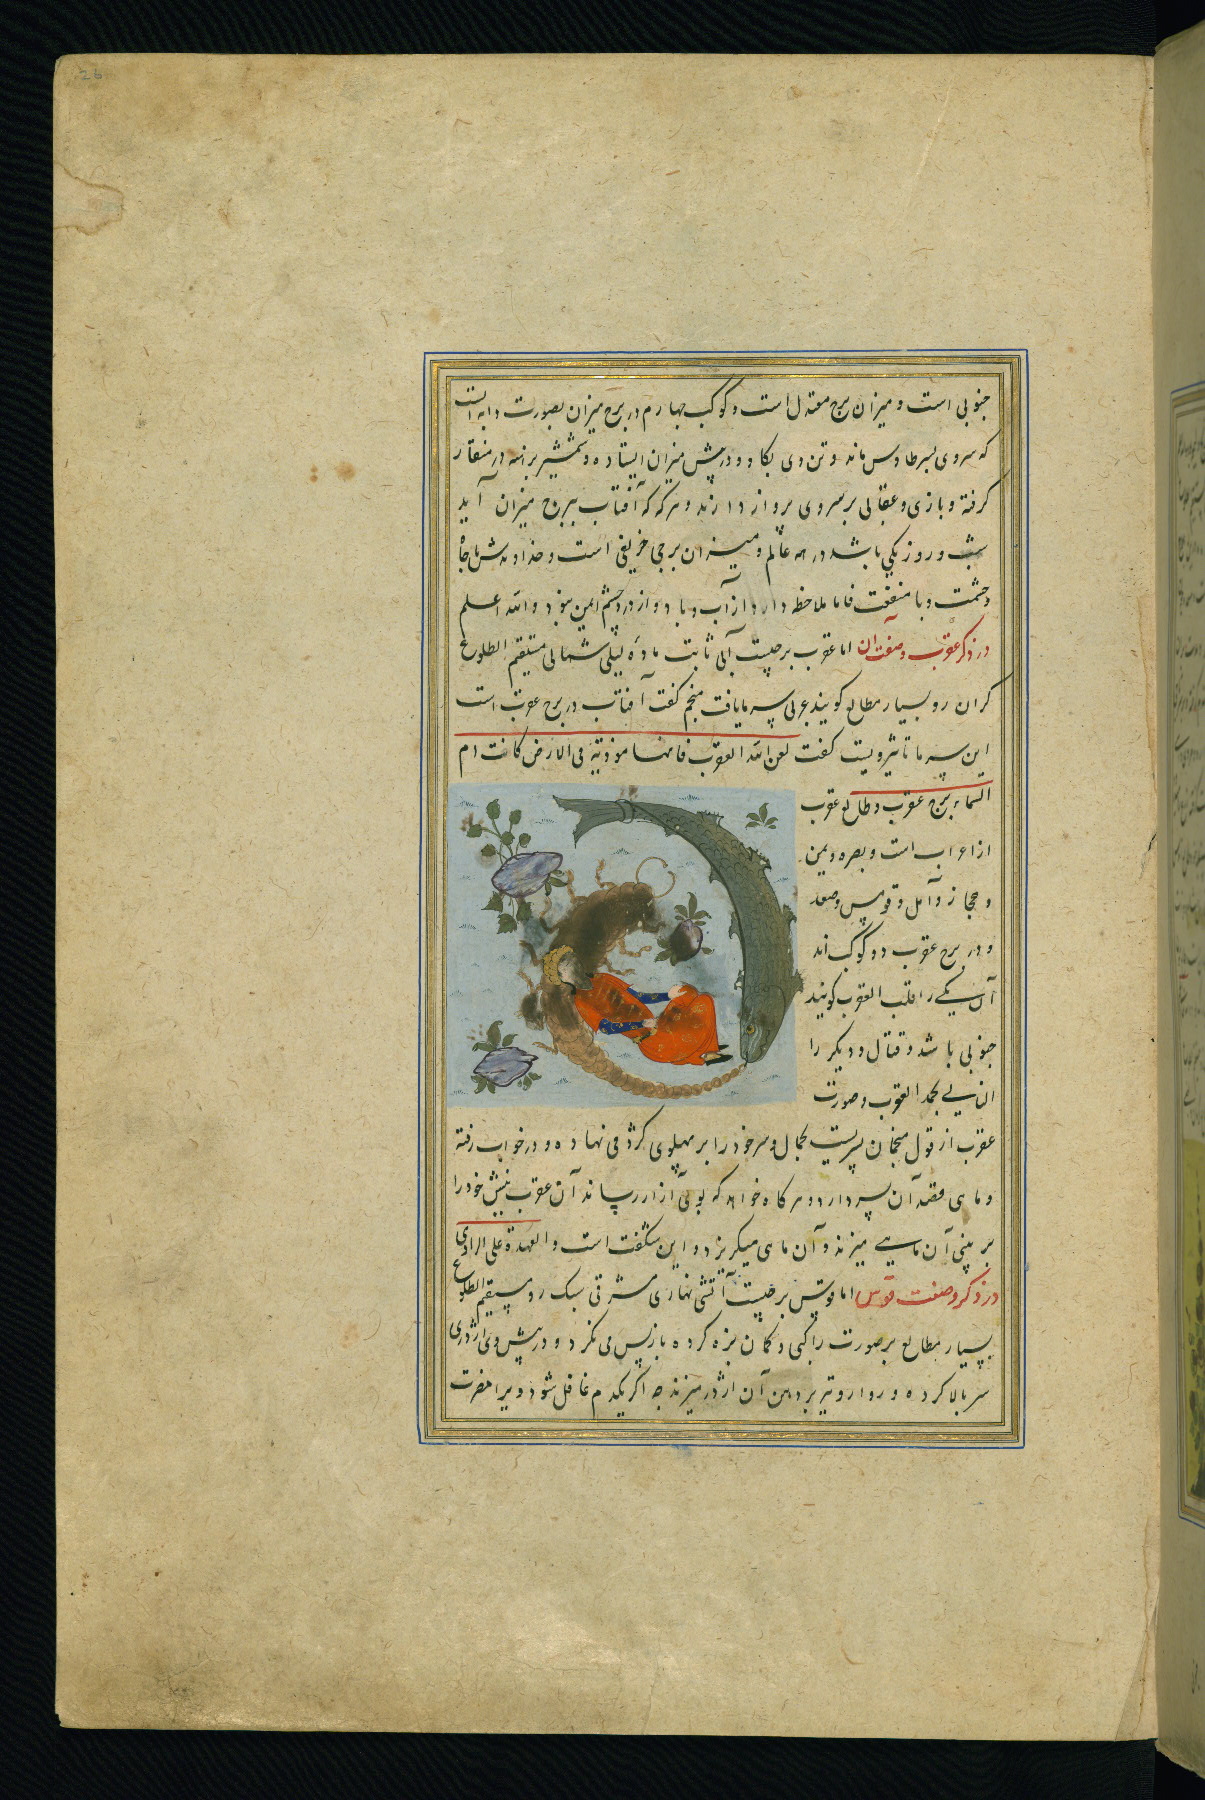 26
جنوبی است و میزان برج معتدل است و کوکب چهارم در برج میزان بصورت دابه است
که سروی بسر طاوس ماند و تن وی بکاو و در پیش میزان ایستاده و شمشیر برهنه در منقار
کرفته و بازی و عقابی بر سر وی پرواز دارند و هرکه که آفتاب ببرج میزان آید
شب و روز یکی باشد در همه عالم و میزان برجی خریفی است و خداوندش با جاه
و حشمت و با منفعت فاما ملاحظه دارد از آب و باد و از درد چشم ایمن نبود والله اعلم
در ذکر عقرب و صفت آن اما عقرب برجیست آبی ثابت ماده لیلی شمالی مستقیم الطلوع
کران رو بسیار مطالع کویند عربی سرما یافت منجم کفت آفتاب در برج عقرب است
این سرما تاثیر ویست کفت لعن الله العقرب فانها موذیة فی الارض کانت ام
السماء برج عقرب و طالع عقرب
از اعراب است و بصره و یمن
و حجاز و آمل و قومس و صعد
و در برج عقرب دو کوکب اند
آن یکی را قلب العقرب کویند
جنوبی باشد و قتال و دیکر را
العقرب و صورت
عقرب از قول منجمان پسریست بجمال و سر خود را بر پهلوی کژدمی نهاده و در خواب رفته
و ماهی قصد آن پسر دارد و هرکاه خواهد که بوی آزار رساند آن عقرب نیش خود را
بر بینی آن ماهی میزند و آن ماهی میکریزد و این شکفت است والعهدة علی الراوی
در ذکر و صفت قوس اما قوس برجیست آتشی نهاری مشرقی سبک رو مستقیم الطلوع
بسیار مطالع بر صورت راکبی و کمان بزه کرده باز پس می نکرد و در پیش وی اژدری
سر بالا کرده و روارو تیر بر دهن آن اژدر میزند چه اکر یکدم غافل شود ویرا مضرت